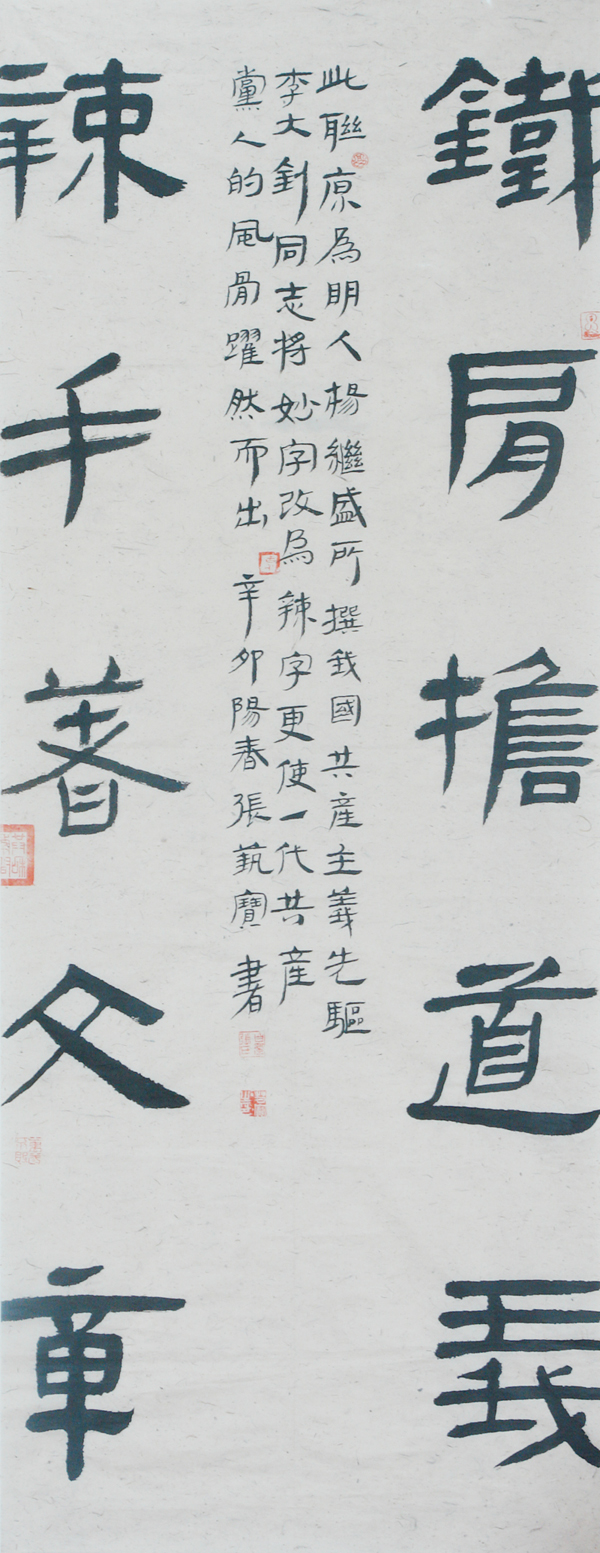 鐵肩擔道義
此聯原為明人楊繼盛所撰我國共產主義先驅
李大釗同志將妙字改為辣字更使一代共產
黨人的風骨躍然而出 辛卯陽春張藝寶書
辣手著文章